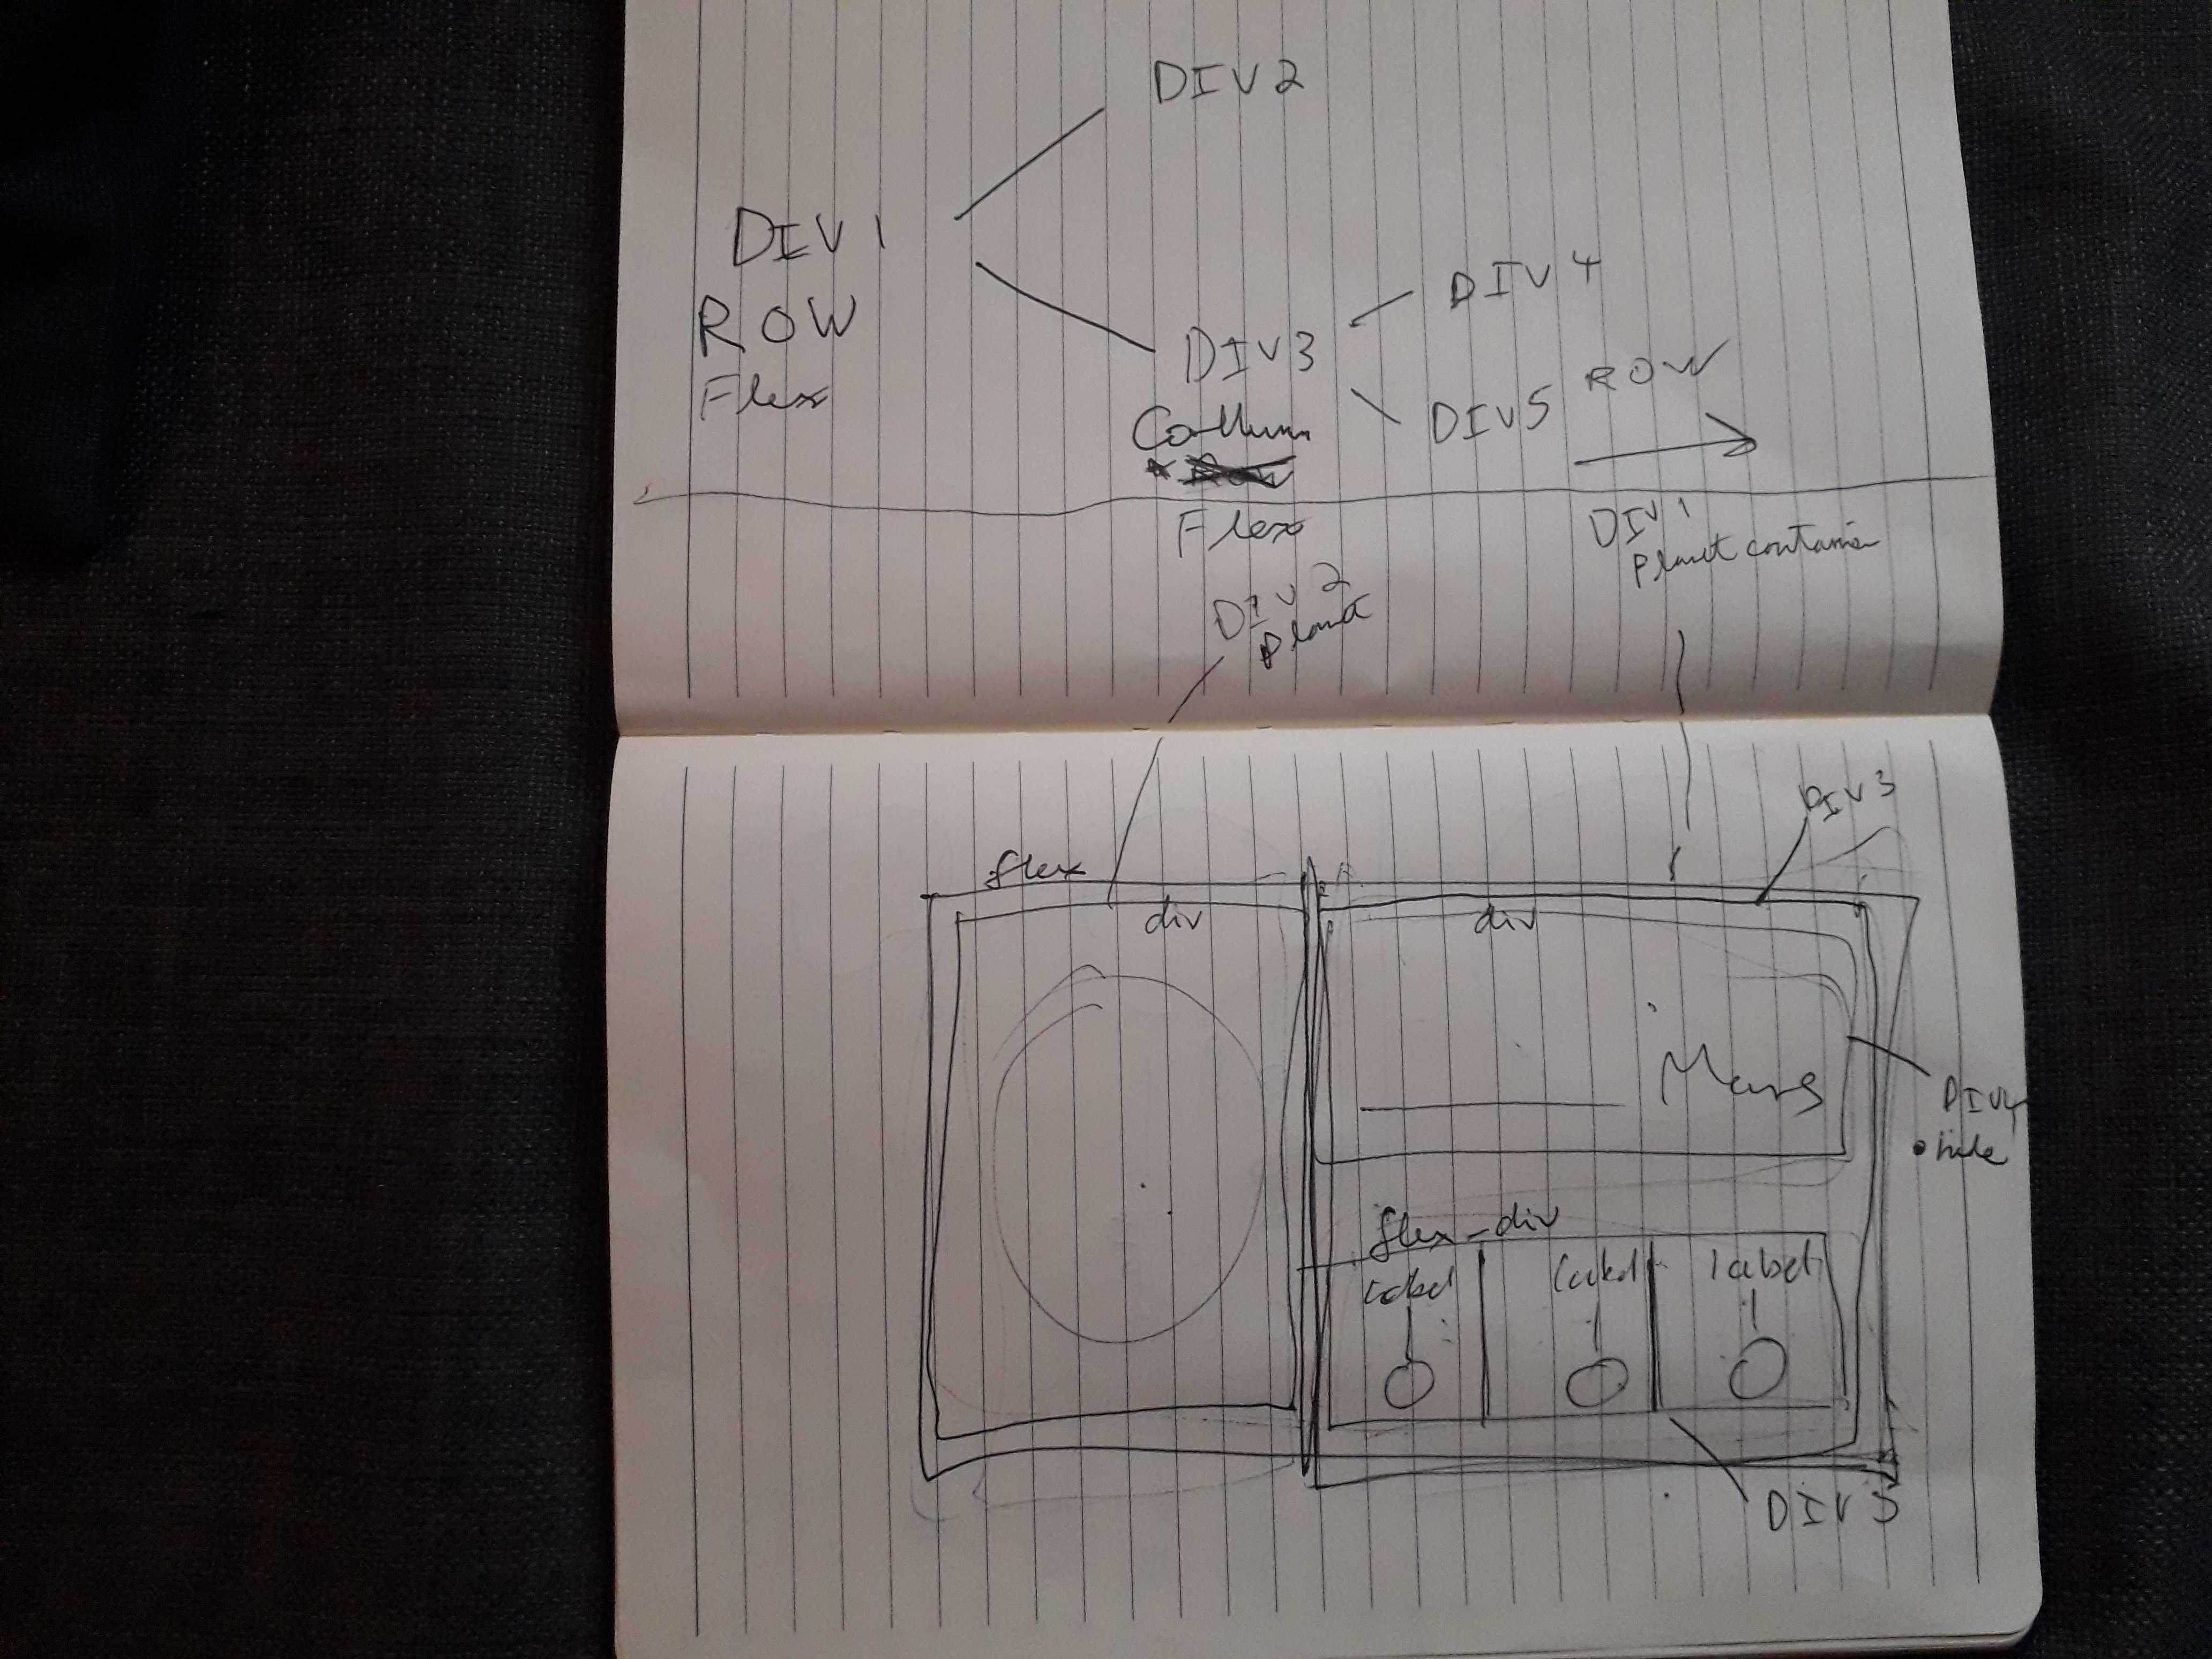 DIV 2
DIV 1
ROW
Flex
DIV 4
DIV 3
Collum
Flex
DIV 5 ROW
DIV 1
Planet container
DIV 2
Planet
DIV 3
flex
div
div
Mars
DIV 4
flex-div
label
label
label
DIV 5